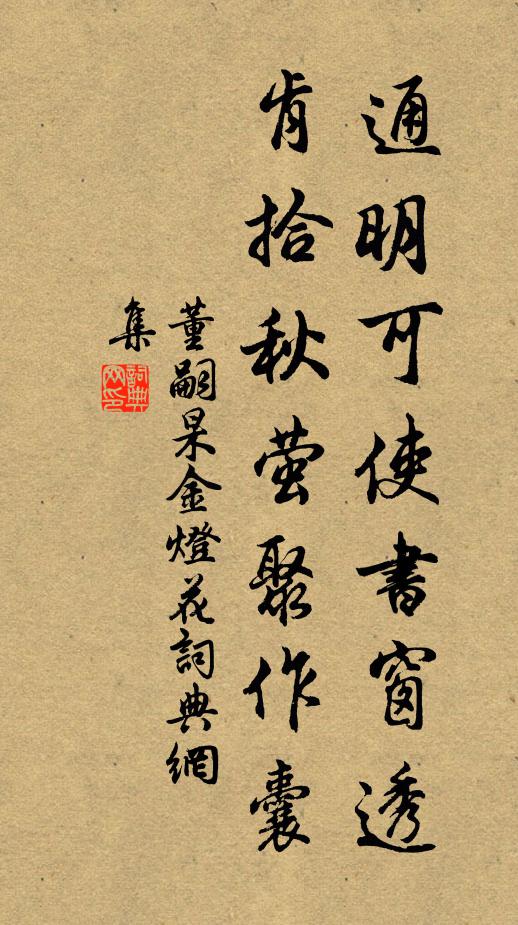 通明可使書窗透
肯拾秋萤聚作囊
董嗣杲金燈花詞典網
集
詞典
网印